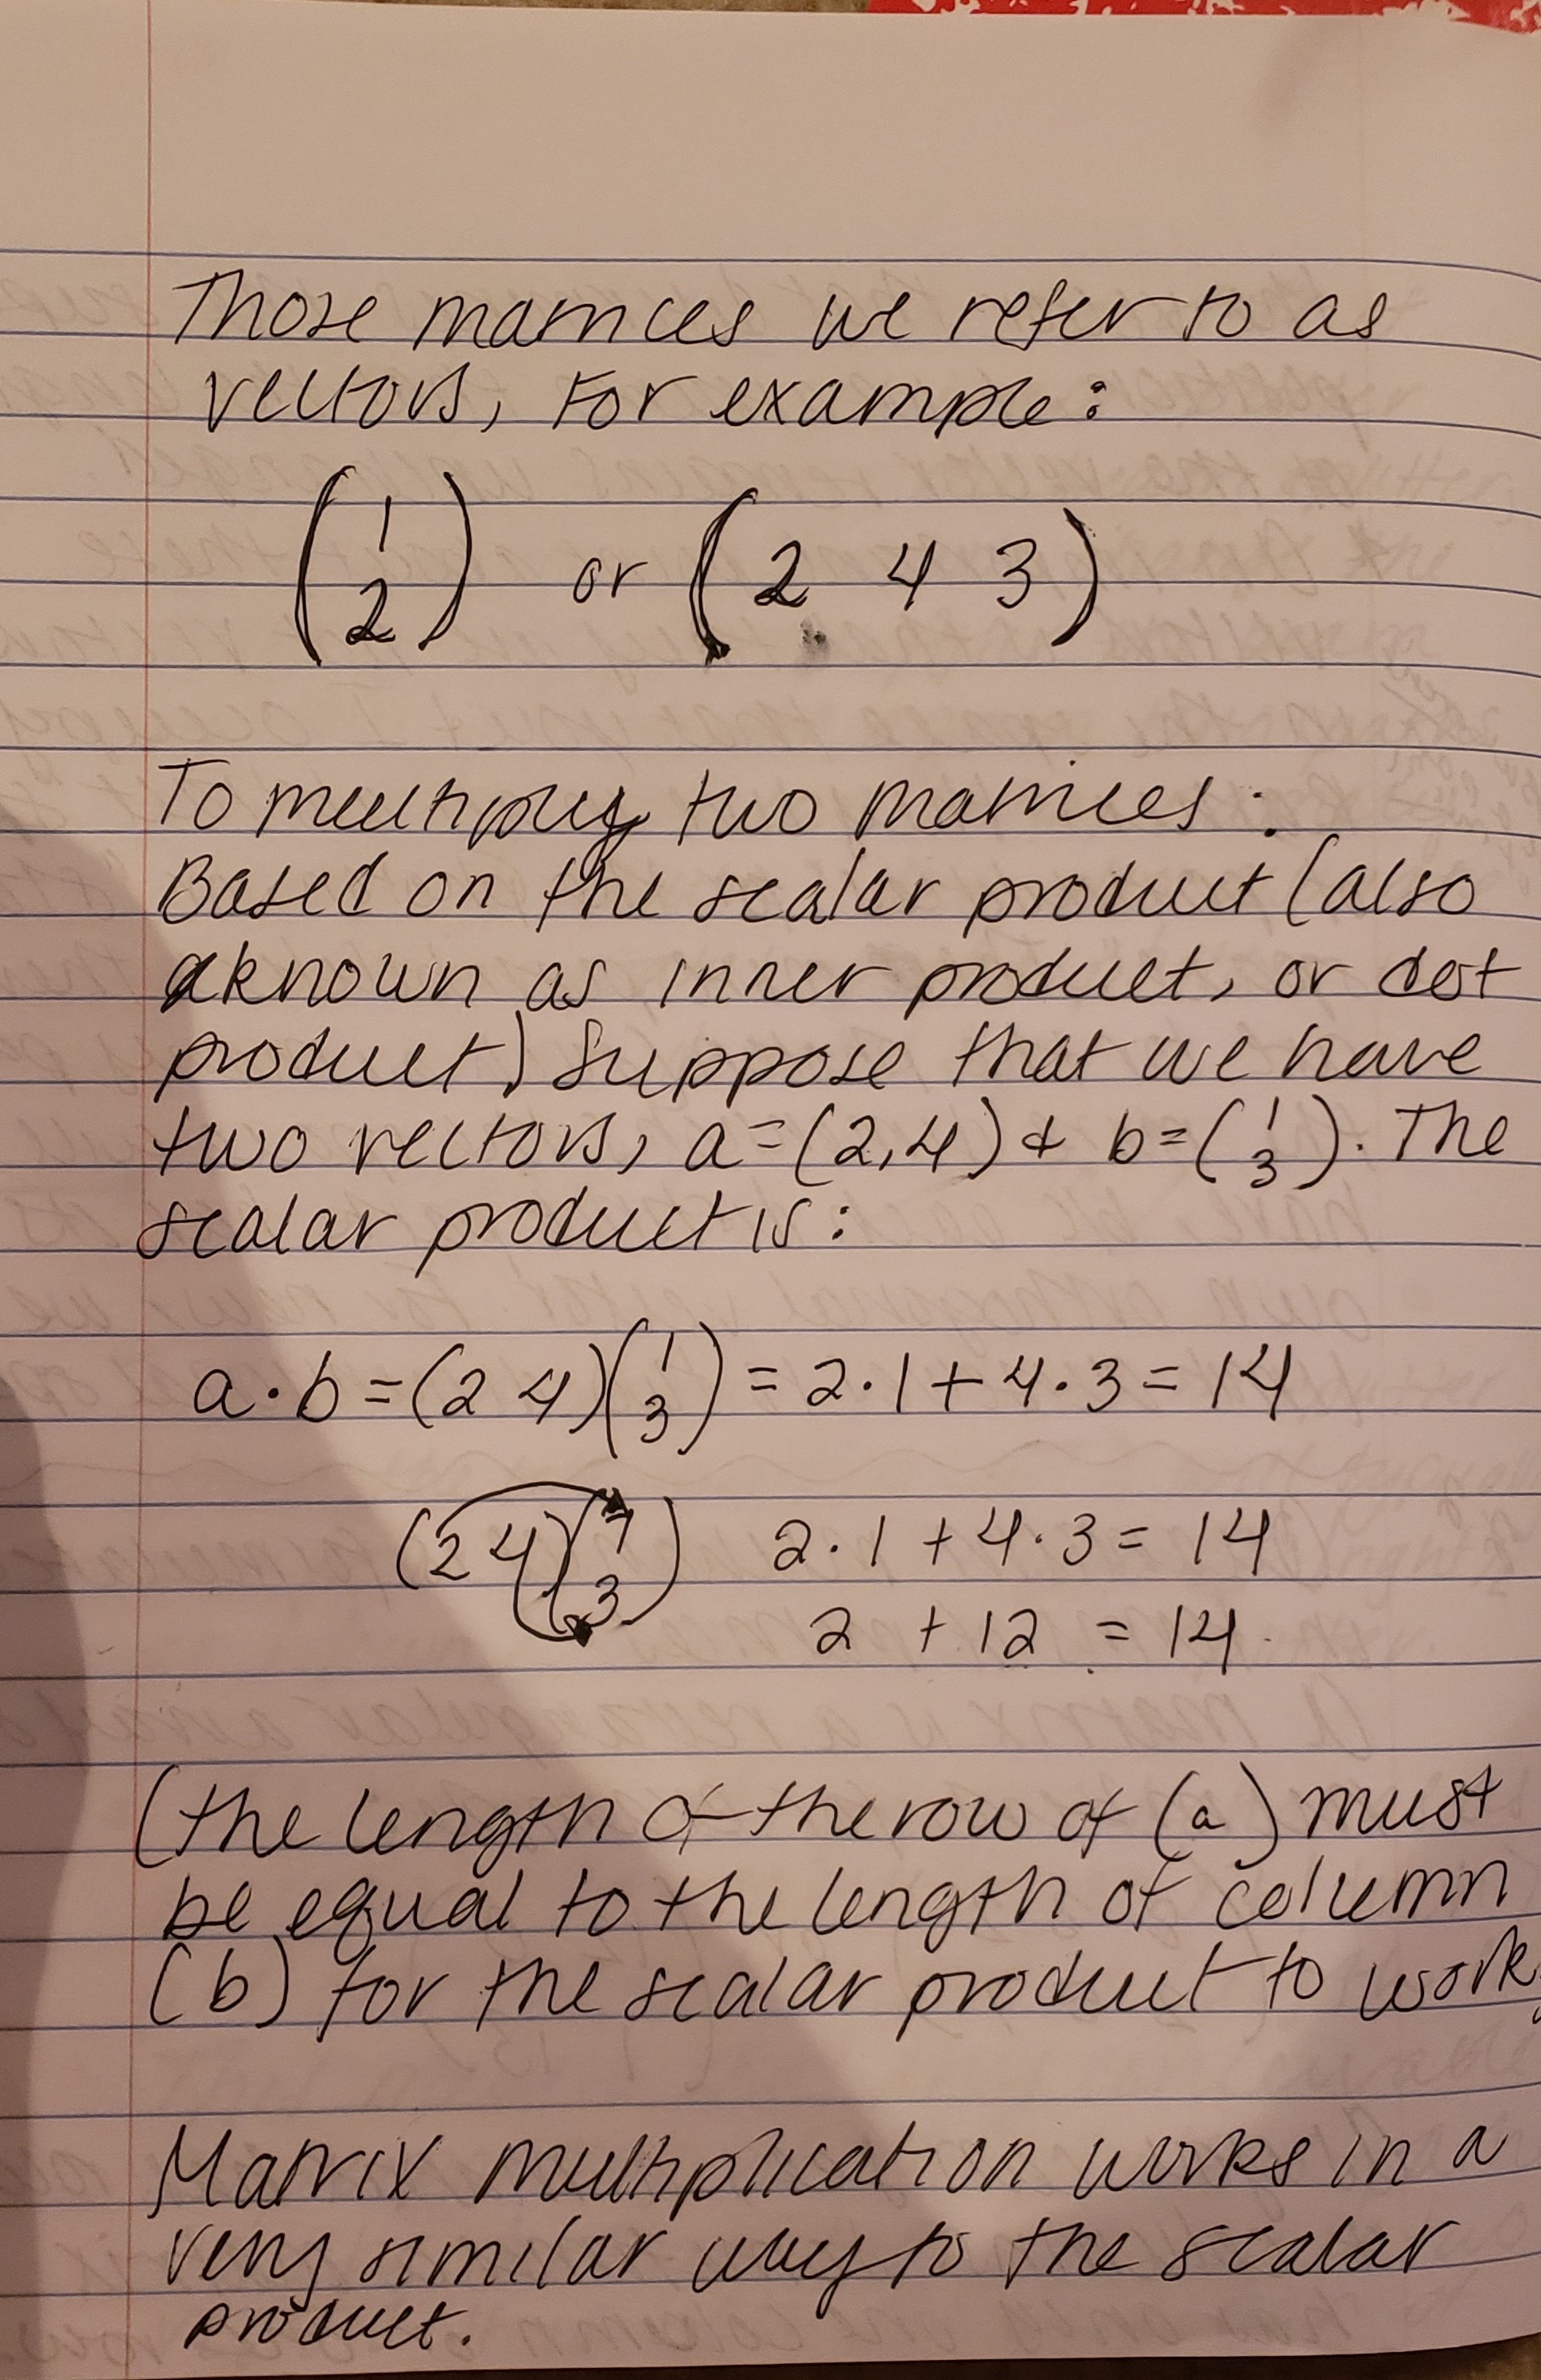 Those matrices we refer to as
vectors, for example:
( 1
2 ) or ( 2 4 3 )
To multiply two matrices:
Based on the scalar product (also
aknown as inner product, or dot
product) Suppose that we have
two vectors, a=(2,4) & b=(1
3). The
scalar product is:
a·b=(2 4)(1
3) = 2·1+4·3=14
(2 4)(1
3) 2·1+4·3=14
2 + 12 = 14
(the length of the row of (a) must
be equal to the length of column
(b) for the scalar product to work,
Matrix multiplication works in a
very similar way to the scalar
product.